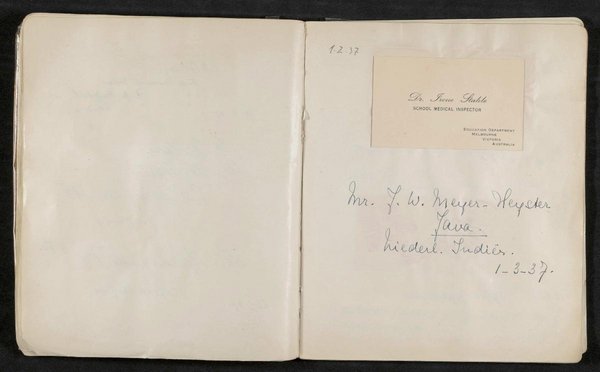 1.2.37
Dr. Irene Stable
SCHOOL MEDICAL INSPECTOR
EDUCATION DEPARTMENT
MELBOURNE
VICTORIA
AUSTRALIA
Mr. J. W. Meyer-Heyster
Java.
Niederl. Indiës.
1-3-37.